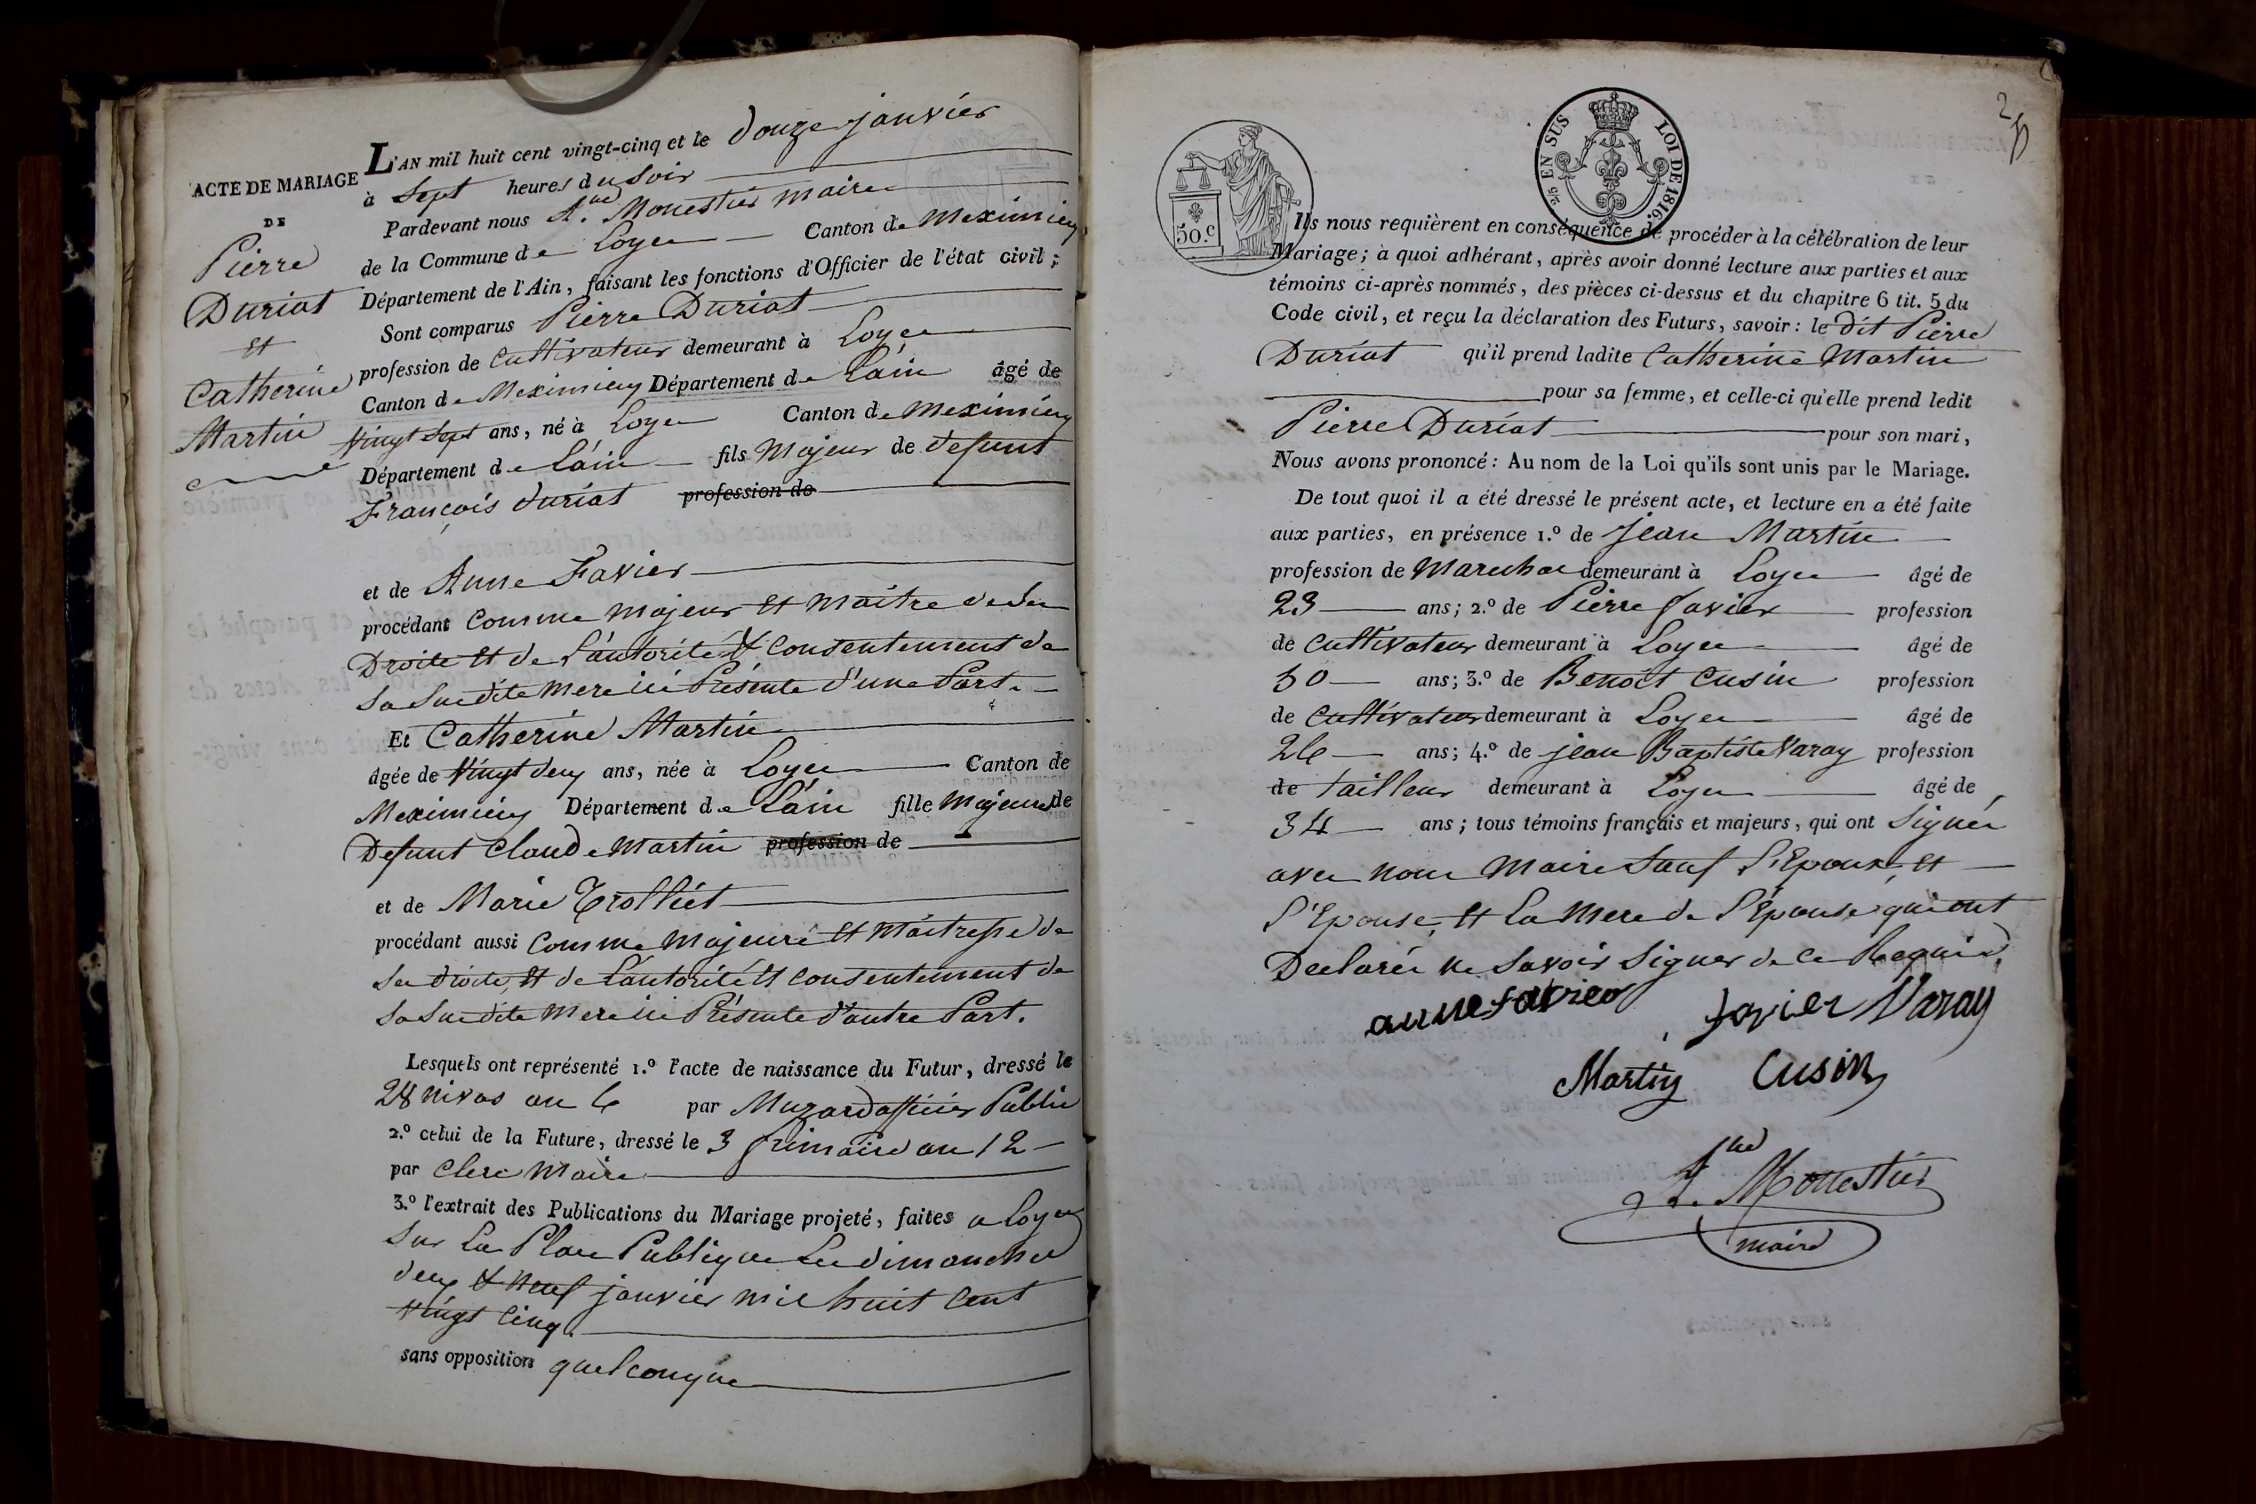 ACTE DE MARIAGE
DE
Pierre
Duriat
et
Catherine
Martin
L'AN mil huit cent vingt-cinq et le douze janvier
à Sept heures du Soir
Pardevant nous Monestier maire
de la Commune de Loyes Canton de Meximieux
Département de l'Ain, faisant les fonctions d'Officier de l'état civil;
Sont comparus Pierre Duriat
profession de cultivateur demeurant à Loyes
Canton de Meximieux Département de L'ain âgé de
vingt Sept ans, né à Loyes Canton de Meximieux
Département de L'ain fils Majeur de defunt
François duriat profession de
et de Anne Favier
procédant comme majeur et maitre de Ses
Droits et de L'autorité & consentement de
Sa Susdite mere ici Présente d'une Part.
Et Catherine Martin
âgée de vingt deux ans, née à Loyes Canton de
Meximieux Département de L'ain fille Majeure de
Defunt Claude Martin profession de
et de Marie Trolliet
procédant aussi comme majeure et maitresse de
Ses droits, et de L'autorité et consentement de
Sa Susdite mere ici Présente d'autre Part.
Lesquels ont représenté 1.º l'acte de naissance du Futur, dressé le
28 nivos an 6 par Muzard officier Public
2.º celui de la Future, dressé le 3 frimaire an 12
par Clerc Maire
3.º l'extrait des Publications du Mariage projeté, faites a Loyes
Sur La Place Publique Les dimanches
deux & neuf janvier mil huit cent
vingt cinq.
sans opposition quelconque
2
50.c
25 EN SUS LOI DE 1816.
Ils nous requièrent en conséquence de procéder à la célébration de leur
Mariage; à quoi adhérant, après avoir donné lecture aux parties et aux
témoins ci-après nommés, des pièces ci-dessus et du chapitre 6 tit. 5 du
Code civil, et reçu la déclaration des Futurs, savoir: le dit Pierre
Duriat qu'il prend ladite Catherine Martin
pour sa femme, et celle-ci qu'elle prend ledit
Pierre Duriat pour son mari,
Nous avons prononcé: Au nom de la Loi qu'ils sont unis par le Mariage.
De tout quoi il a été dressé le présent acte, et lecture en a été faite
aux parties, en présence 1.º de Jean Martin
profession de Marechal demeurant à Loyes âgé de
23 ans; 2.º de Pierre favier profession
de cultivateur demeurant à Loyes âgé de
50 ans; 3.º de Benoit Cusin profession
de cultivateur demeurant à Loyes âgé de
26 ans; 4.º de jean Baptiste Varay profession
de tailleur demeurant à Loyes âgé de
34 ans; tous témoins français et majeurs, qui ont Signés
avec nous Maire Sauf L'Epoux, et
L'Epouse, et La Mere de L'Epouse, qui ont
Declarés ne Savoir Signer de ce Requis.
anne favier
favier Varay
Martin Cusin
Monestier
maire